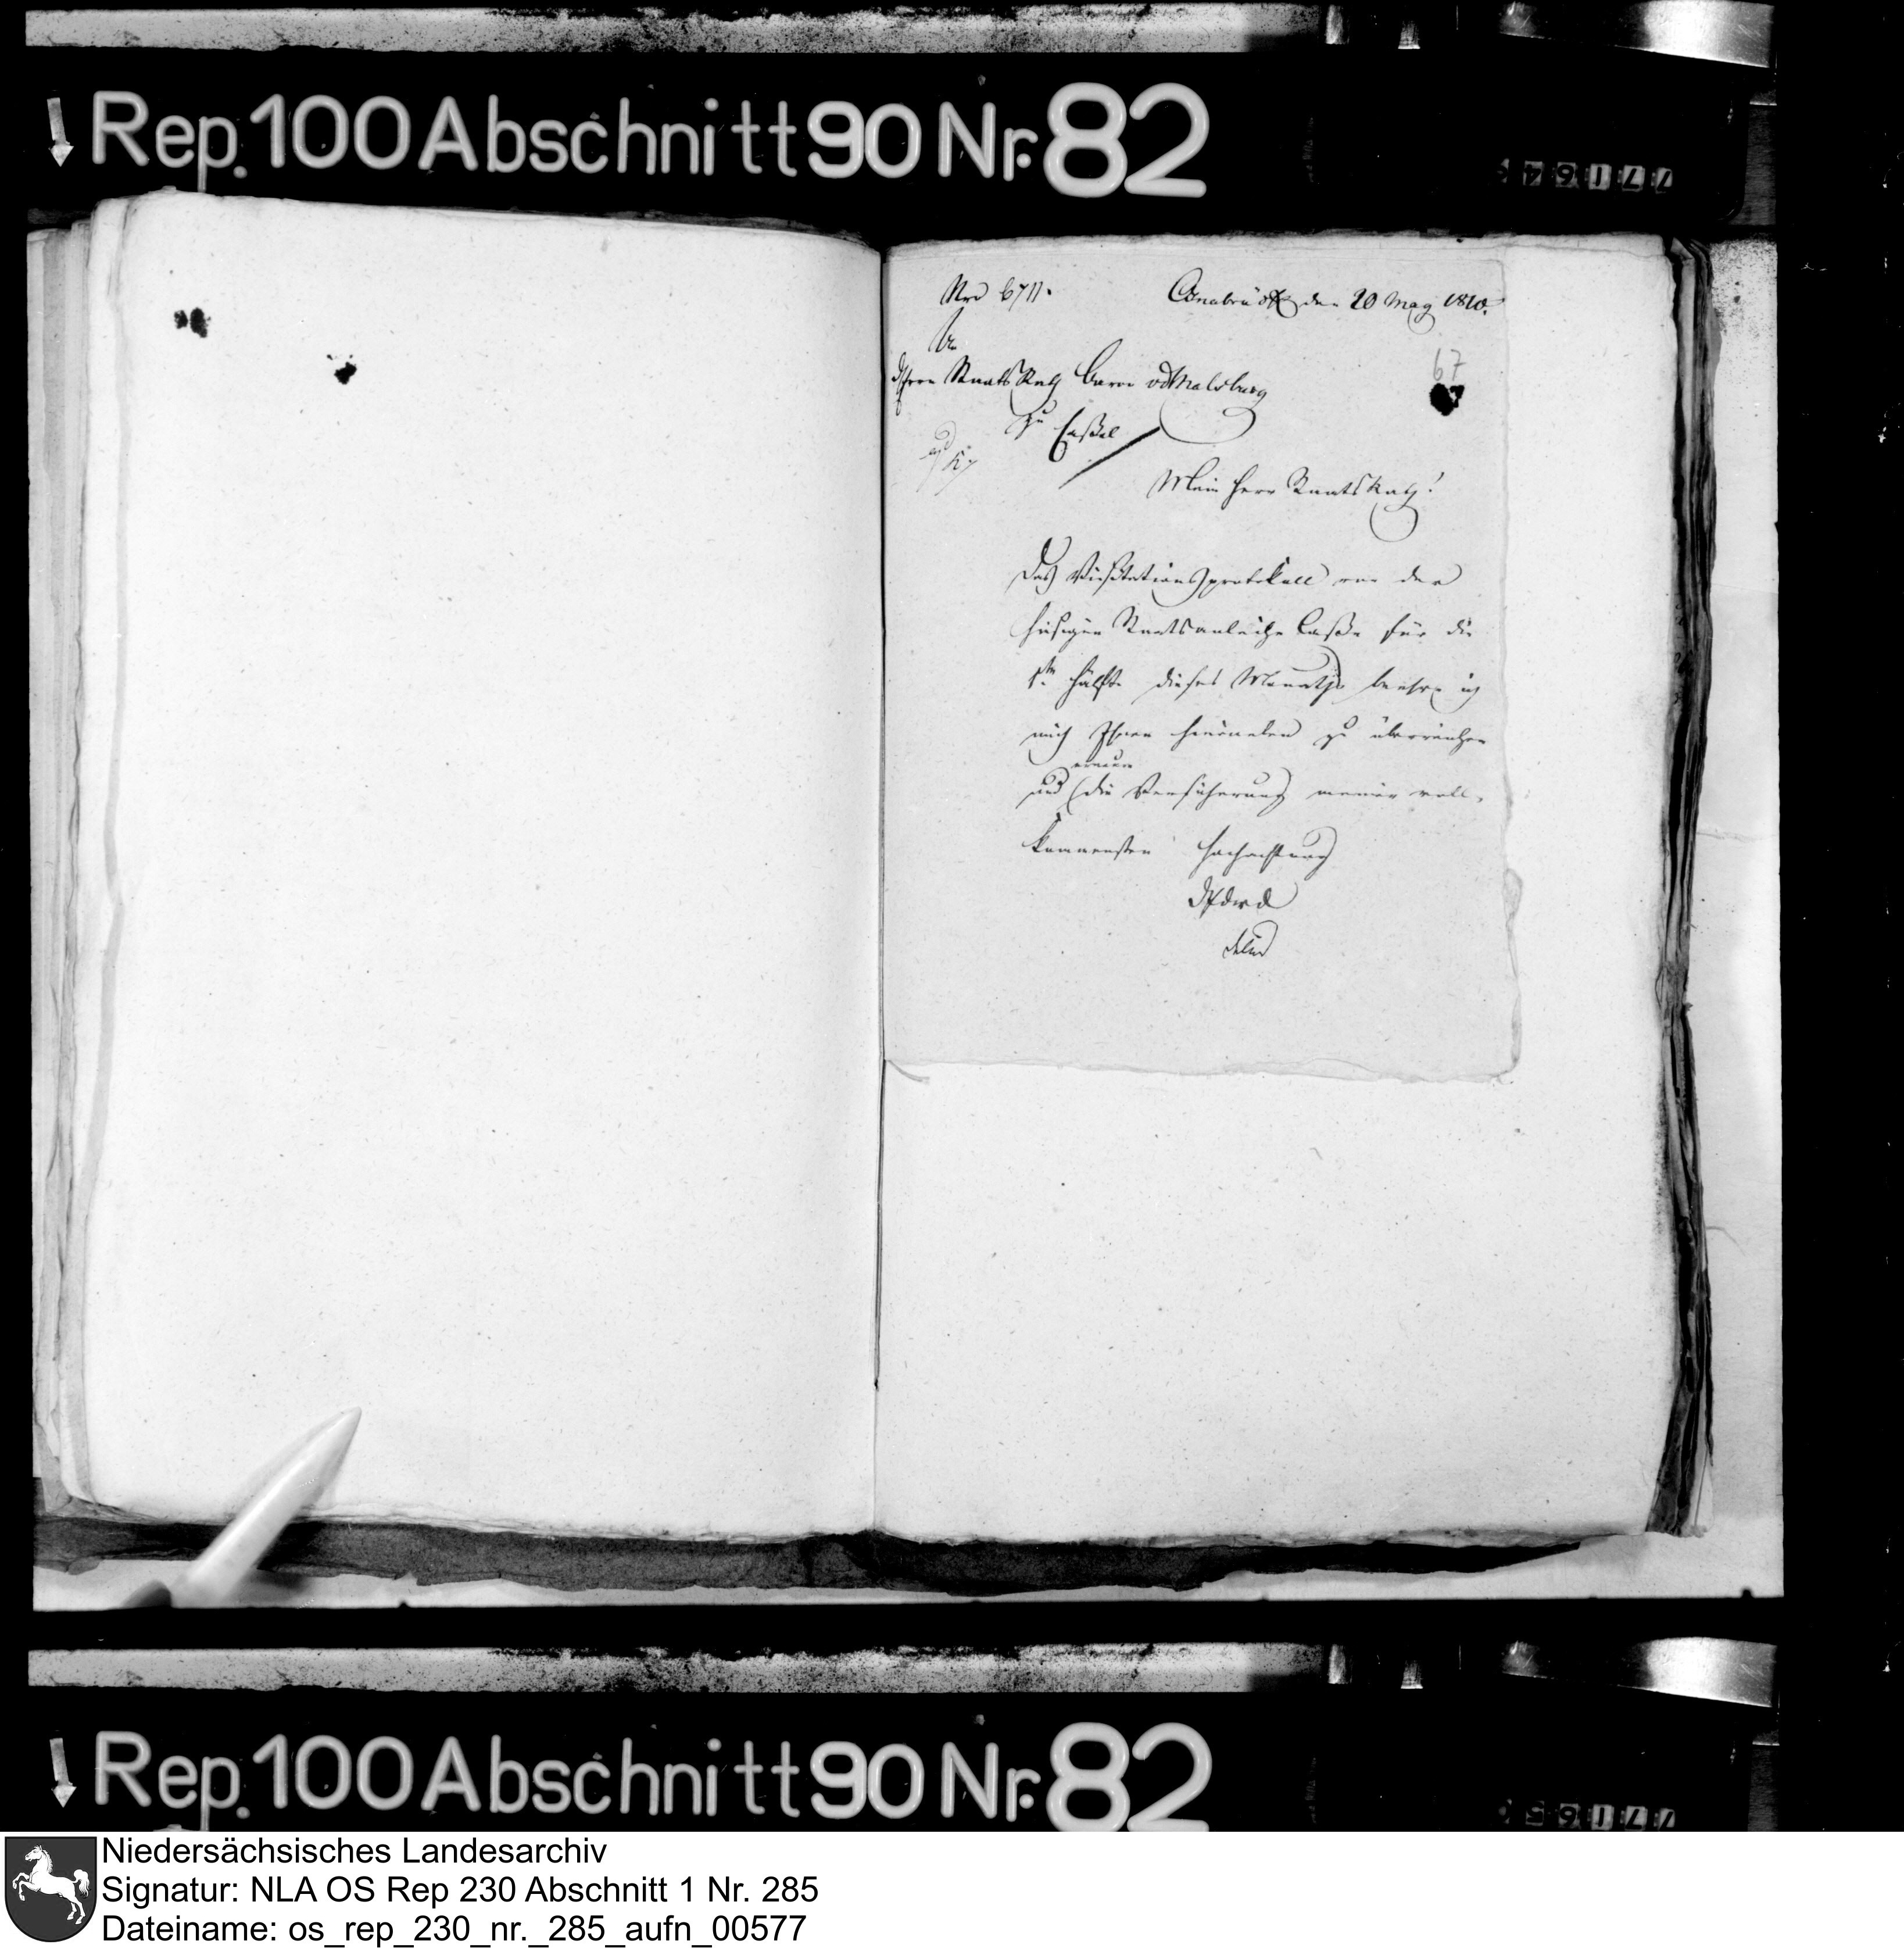 Rep. 100 Abschnitt 90 Nr. 82
77164
Nro 6711.
Osnabrück den 20 May 1810.
An
Herrn Staats Rath Baron vd Malsburg
zu Cassel
67
Mein Herr Staats Rath!
Das Visitations protokoll von der
hiesigen Staatsanleihe Casse für die
1te Hälfte dieses Monaths beehre ich
mich Ihnen hieneben zu überreichen
erneure
und die Versicherung meiner voll-
kommensten Hochachtung
Rep. 100 Abschnitt 90 Nr. 82
77165
Niedersächsisches Landesarchiv
Signatur: NLA OS Rep 230 Abschnitt 1 Nr. 285
Dateiname: os_rep_230_nr._285_aufn_00577